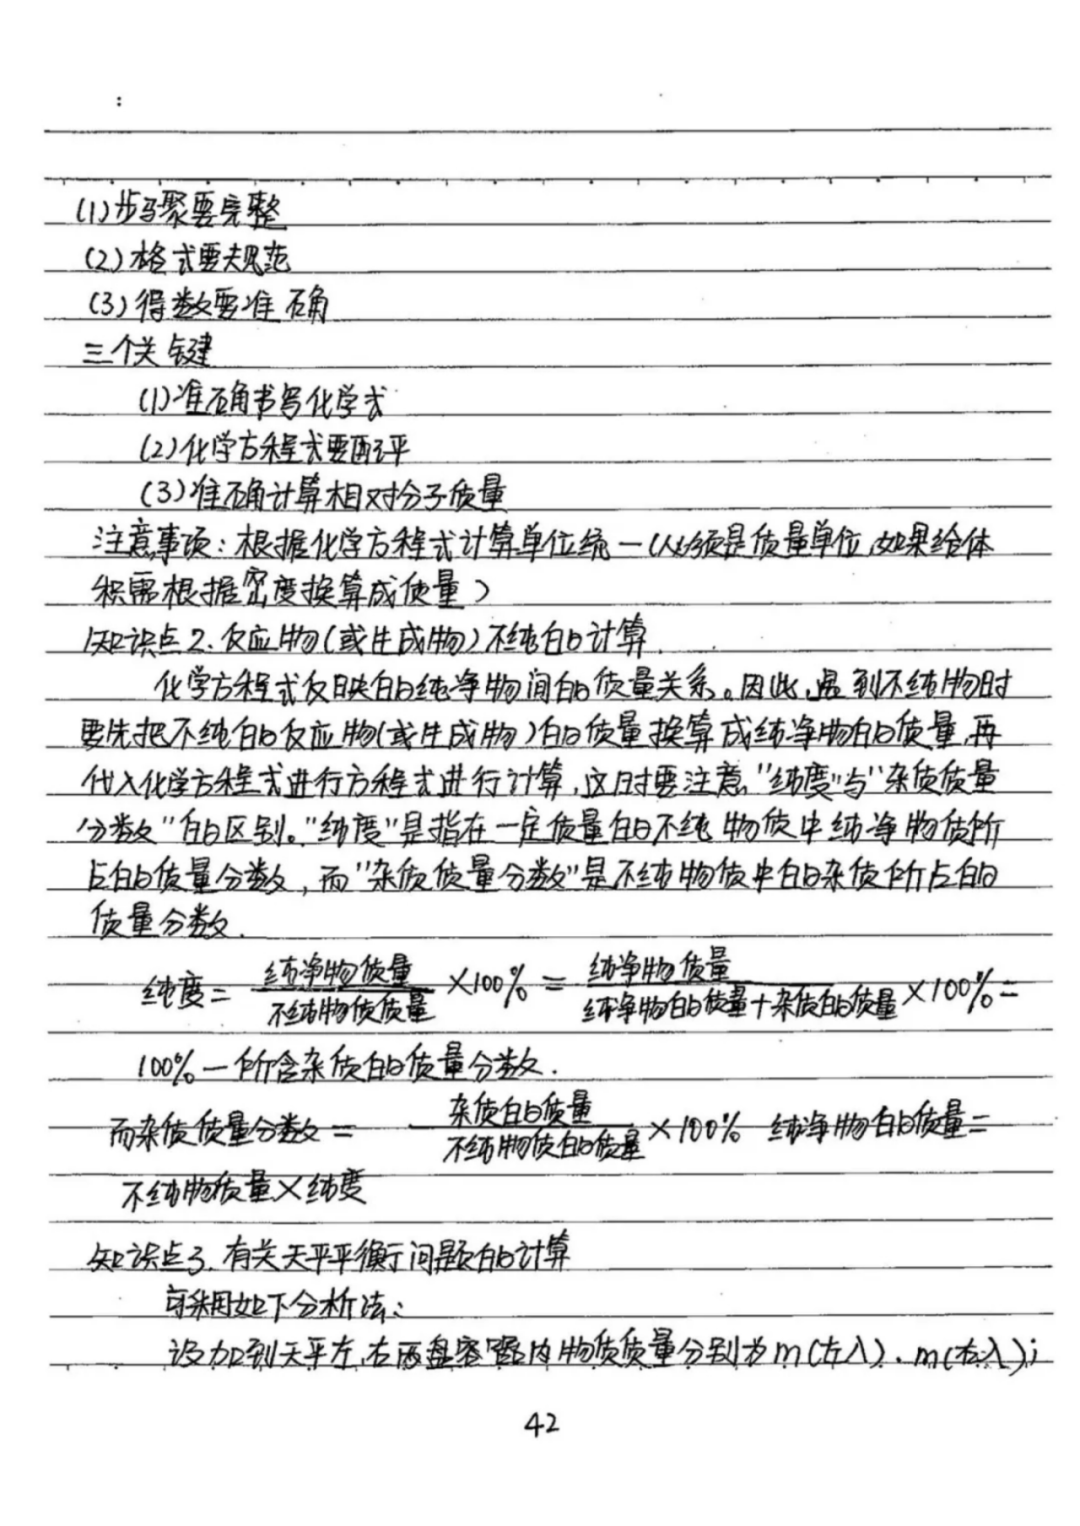 :
(1)步骤要完整
(2)格式要规范
(3)得数要准确
三个关键
(1)准确书写化学式
(2)化学方程式要配平
(3)准确计算相对分子质量
注意事项:根据化学方程式计算单位统一(必须是质量单位,如果给体
积需根据密度换算成质量)
知识点2.反应物(或生成物)不纯的计算.
化学方程式反映的纯净物间的质量关系。因此,遇到不纯物时
要先把不纯的反应物(或生成物)的质量换算成纯净物的质量,再
代入化学方程式进行方程式进行计算,这时要注意"纯度"与"杂质质量
分数"的区别。"纯度"是指在一定质量的不纯物质中纯净物质所
占的质量分数,而"杂质质量分数"是不纯物质中的杂质所占的
质量分数.
纯度=纯净物质量/不纯物质质量×100%=纯净物质量/纯净物的质量+杂质的质量×100%=
100%-所含杂质的质量分数.
而杂质质量分数=杂质的质量/不纯物质的质量×100% 纯净物的质量=
不纯物质量×纯度
知识点3.有关天平平衡问题的计算
可采用如下分析法:
设加到天平左,右两盘容器内物质质量分别为m(左入).m(右入);
42